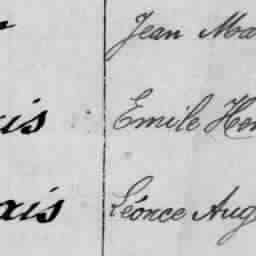 Jean Ma
is Emile Hen
ais Léonce Aug